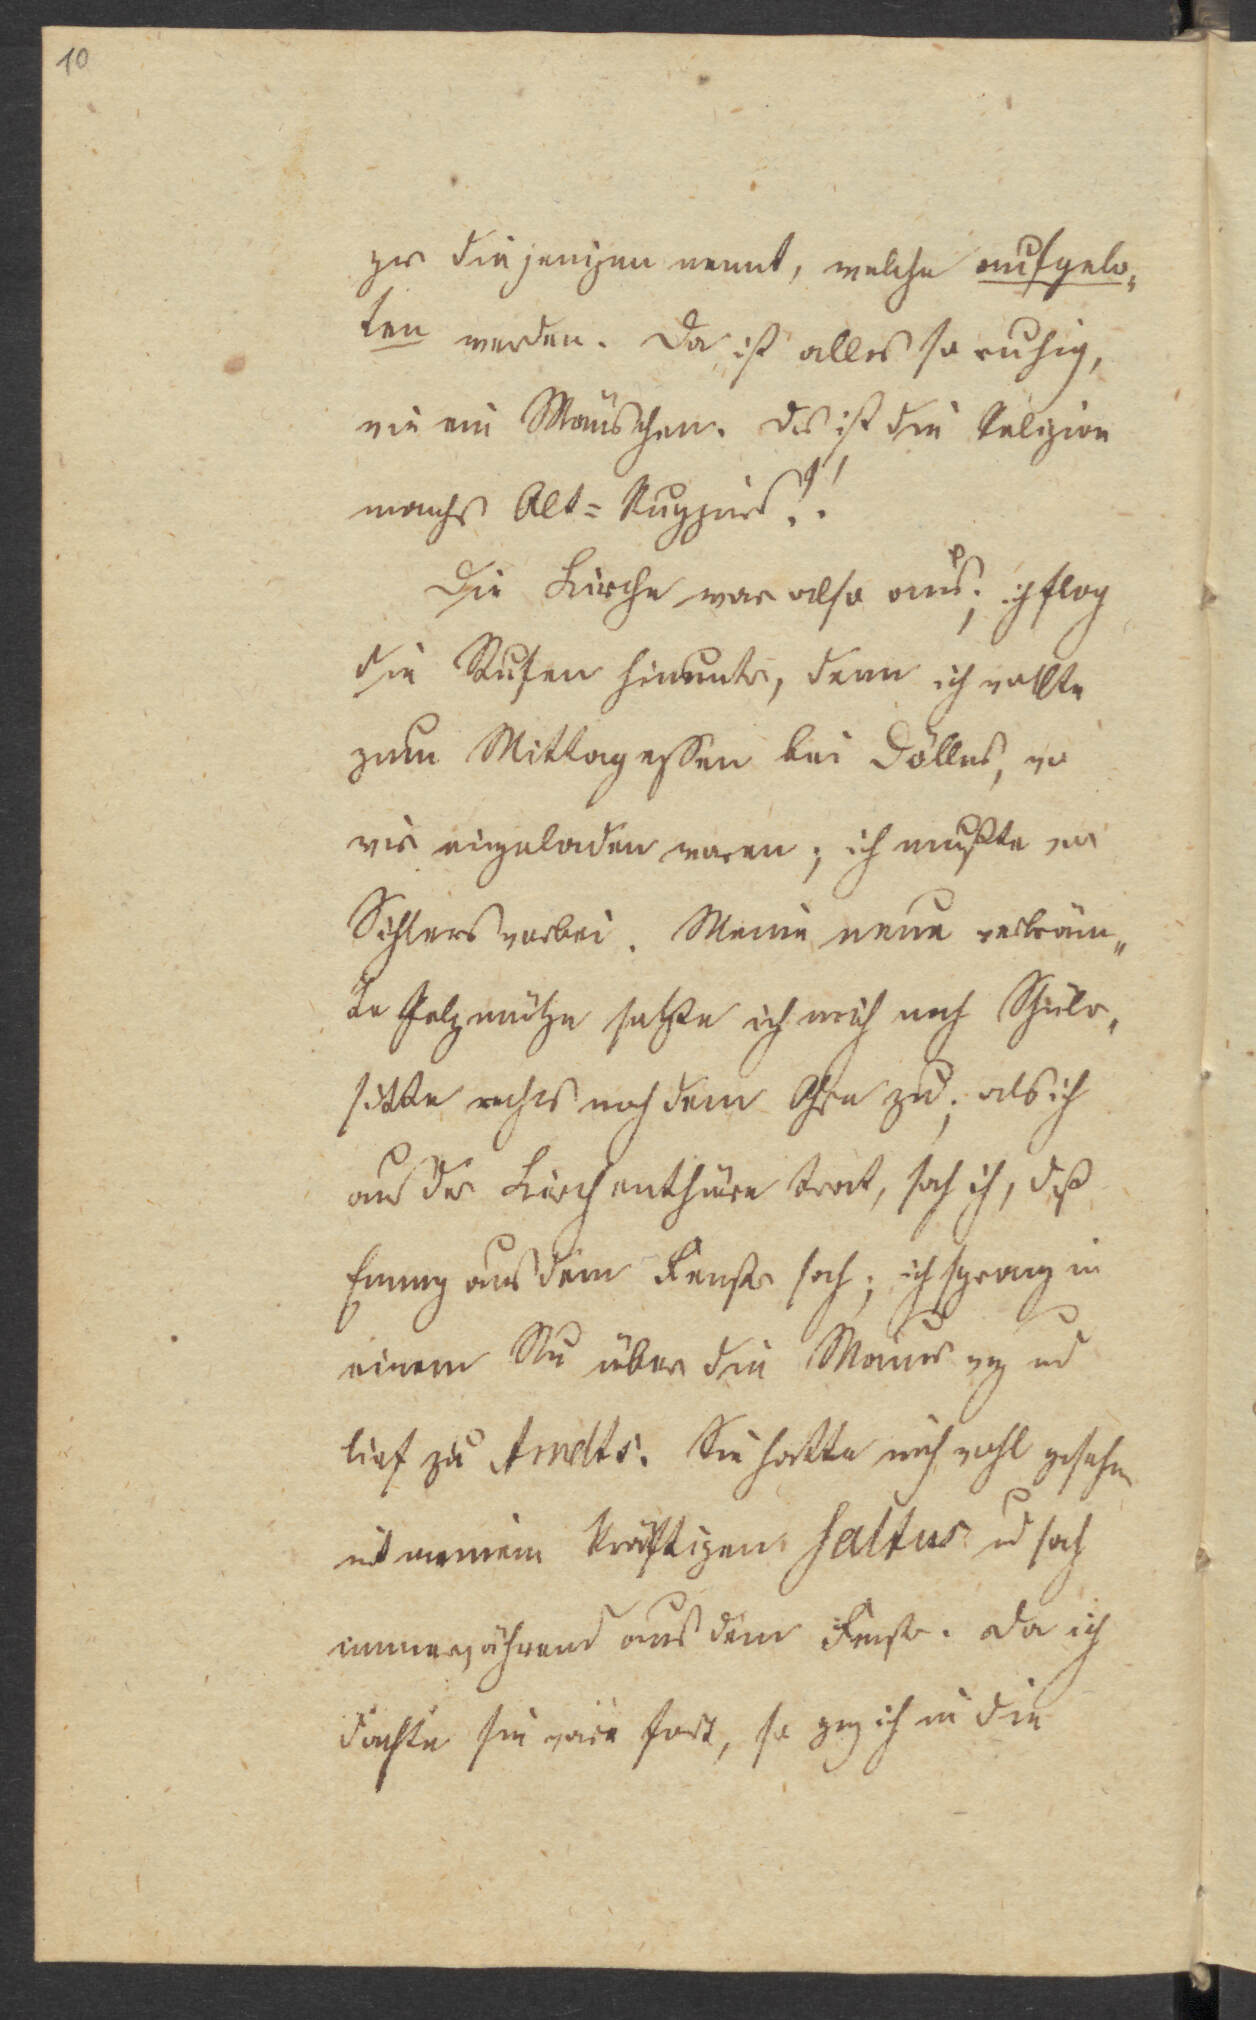 10
ger diejenigen nennt, welche aufgebo-
ten werden. Da ist alles so ruhig,
wie ein Mäuschen. Das ist die Religion
manches Alt-Ruppiners!!
Die Kirche war also aus; ich flog
die Stufen hinunter, denn ich wollte
zum Mittagessen bei Dölles, wo
wir eingeladen waren; ich mußte vor
vorbei. Meine neue verbräm-
te Pelzmütze setzte ich mich nach Schüler-
sitte rechts nach dem Ohre zu; als ich
aus der Kirchenthüre trat, sah ich, daß
Emmy aus dem Fenster sah; ich sprang in
einem Nu über die Mauer weg und
lief zu Arndts. Sie hatte mich wohl gesehen
mit meinem kräftigen Saltus und sah
immerwährend aus dem Fenster. Da ich
dachte sie wäre fort, so ging ich in die